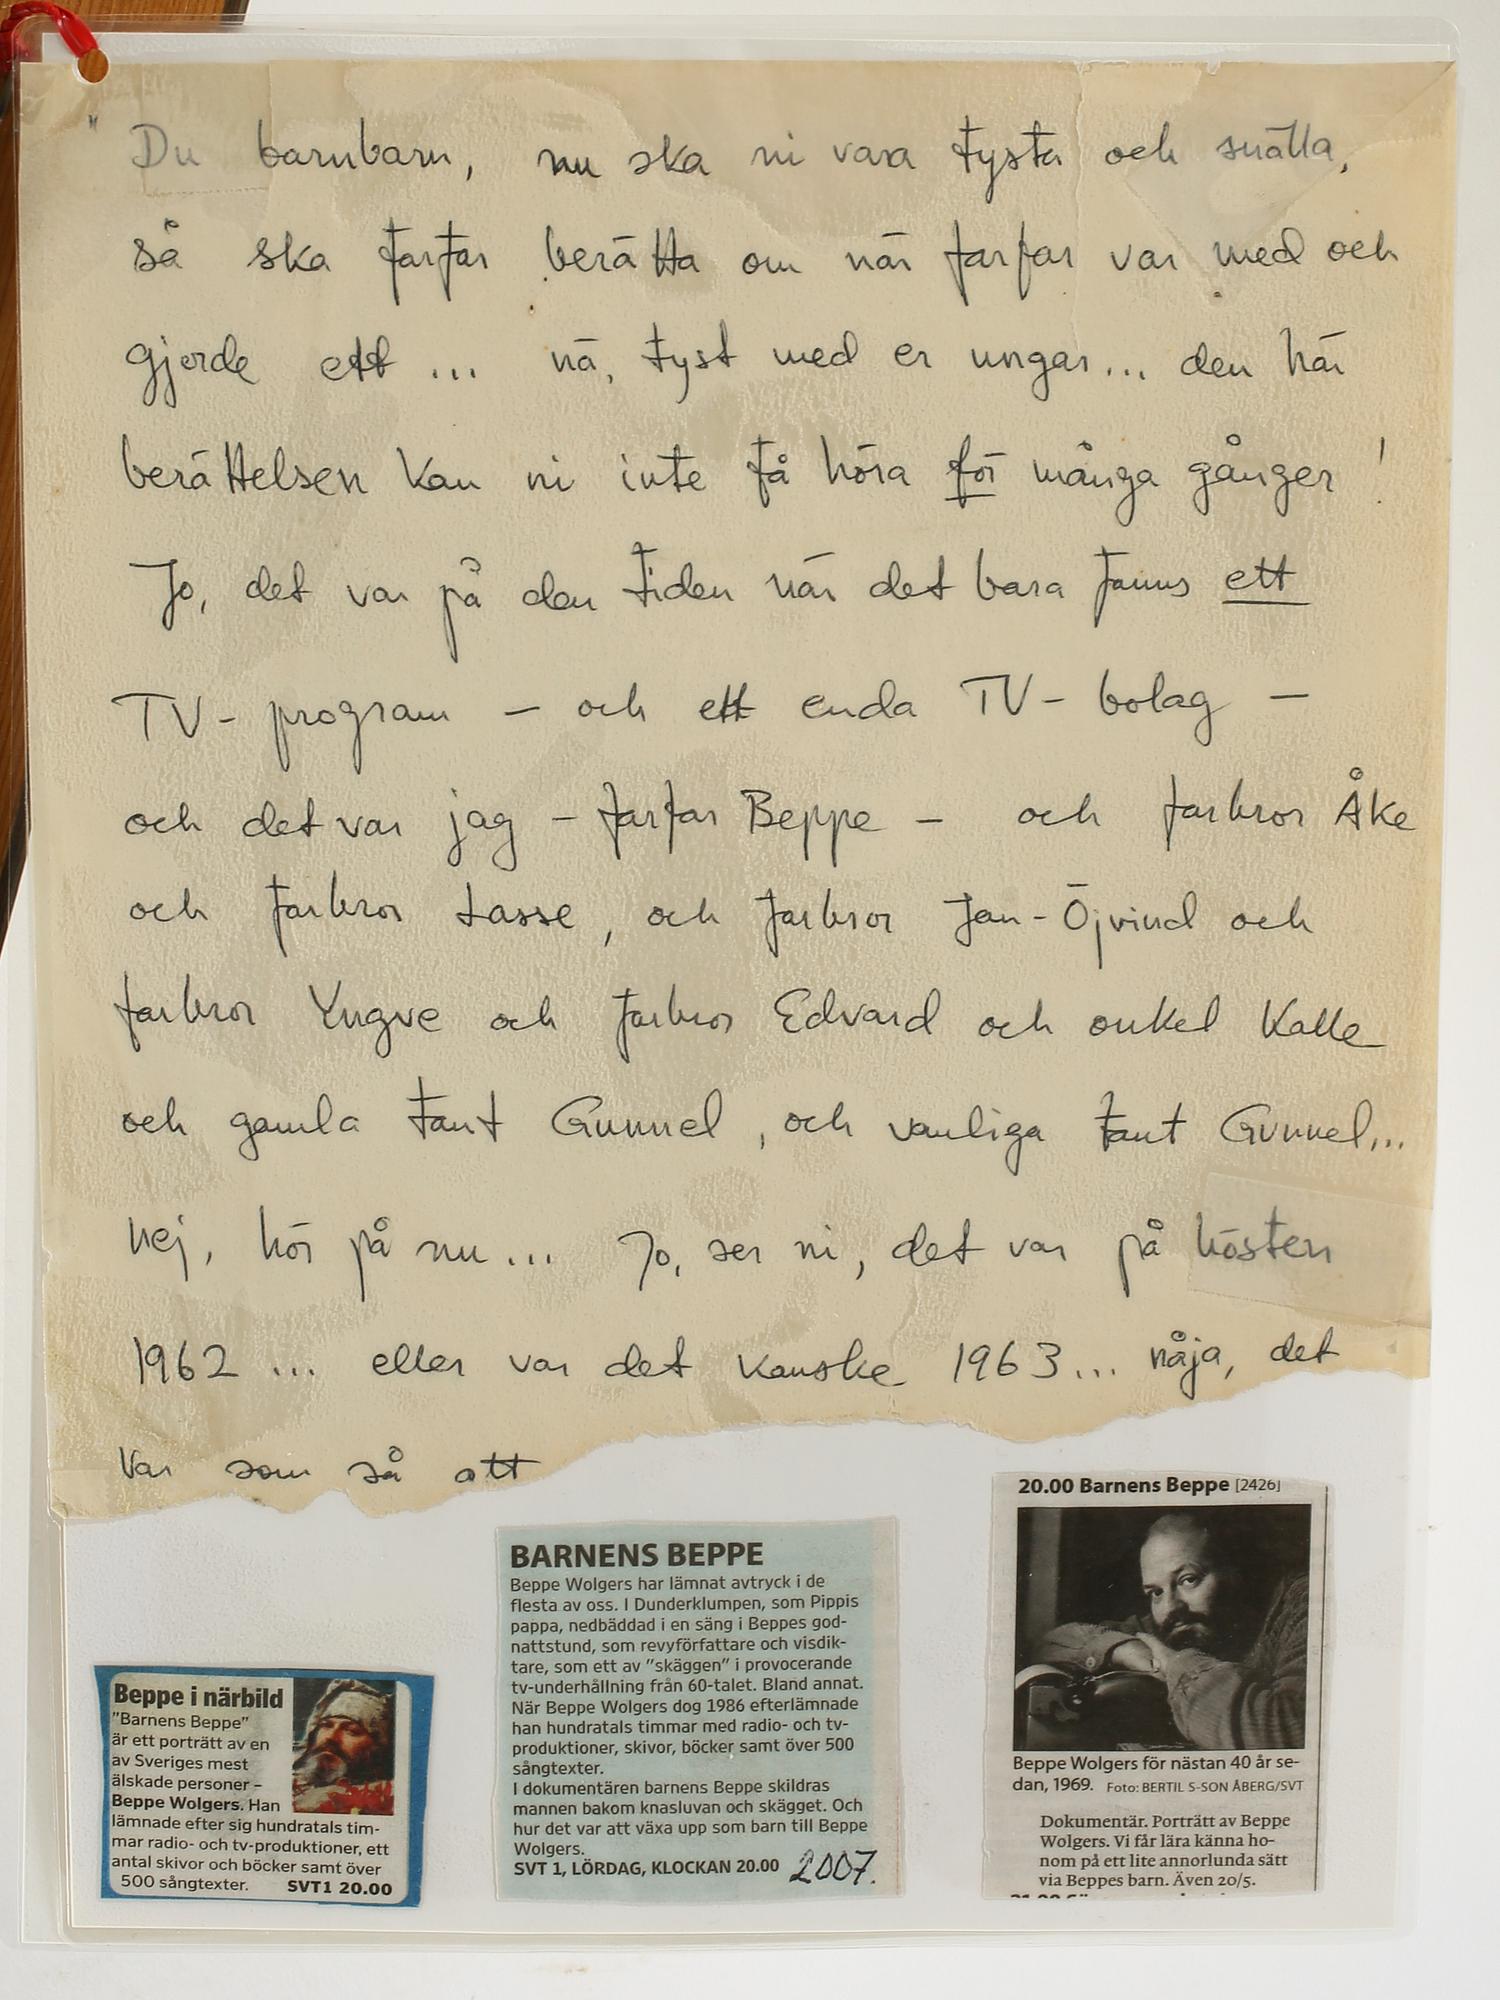 " Du barnbarn, nu ska ni vara tysta och snälla,
så ska farfar berätta om när farfar var med och
gjorde ett ... nä, tyst med er ungar... den här
berättelsen kan ni inte få höra för många gånger !
Jo, det var på den tiden när det bara fanns ett
TV-program – och ett enda TV-bolag –
och det var jag – farfar Beppe – och farbror Åke
och farbror Lasse, och farbror Jan-Öjvind och
farbror Yngve och farbror Edvard och onkel Kalle
och gamla tant Gunnel, och vanliga tant Gunnel...
nej, hör på nu... Jo, ser ni, det var på hösten
1962 ... eller var det kanske 1963... nåja, det
var som så att
Beppe i närbild
"Barnens Beppe"
är ett porträtt av en
av Sveriges mest
älskade personer –
Beppe Wolgers. Han
lämnade efter sig hundratals tim-
mar radio- och tv-produktioner, ett
antal skivor och böcker samt över
500 sångtexter. SVT1 20.00
BARNENS BEPPE
Beppe Wolgers har lämnat avtryck i de
flesta av oss. I Dunderklumpen, som Pippis
pappa, nedbäddad i en säng i Beppes god-
nattstund, som revyförfattare och visdik-
tare, som ett av "skäggen" i provocerande
tv-underhållning från 60-talet. Bland annat.
När Beppe Wolgers dog 1986 efterlämnade
han hundratals timmar med radio- och tv-
produktioner, skivor, böcker samt över 500
sångtexter.
I dokumentären barnens Beppe skildras
mannen bakom knasluvan och skägget. Och
hur det var att växa upp som barn till Beppe
Wolgers.
SVT 1, LÖRDAG, KLOCKAN 20.00 2007.
20.00 Barnens Beppe [2426]
Beppe Wolgers för nästan 40 år se-
dan, 1969. Foto: BERTIL S-SON ÅBERG/SVT
Dokumentär. Porträtt av Beppe
Wolgers. Vi får lära känna ho-
nom på ett lite annorlunda sätt
via Beppes barn. Även 20/5.